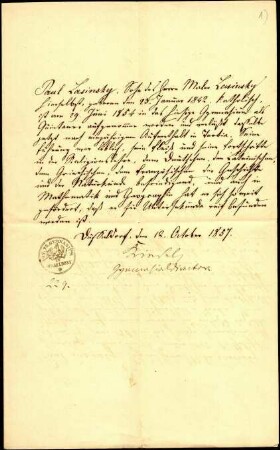 Paul Lasinsky, Sohn des Herrn Maler Lasinsky
hierselbst, geboren den 23. Januar 1842, katholisch,
ist am 29. Juni 1854 in das hiesige Gymnasium als
Quintaner aufgenommen worden und verläßt dasselbe
jetzt nach einjährigem Aufenthalt in Tertia. Seine
Führung war sein Fleiß und seine Fortschritte
in der Religionslehre, dem Deutschen, dem Lateinischen,
dem Griechischen, dem Französischen, der Geschichte
und der Naturkunde befriedigend, und auch in
Mathematik und Geographie hat er sich soweit
gefördert, daß er für Untersekunda reif befunden
worden ist.
Düsseldorf, den 12. October 1857.
Kiesel
Gymnasialdirector
229.